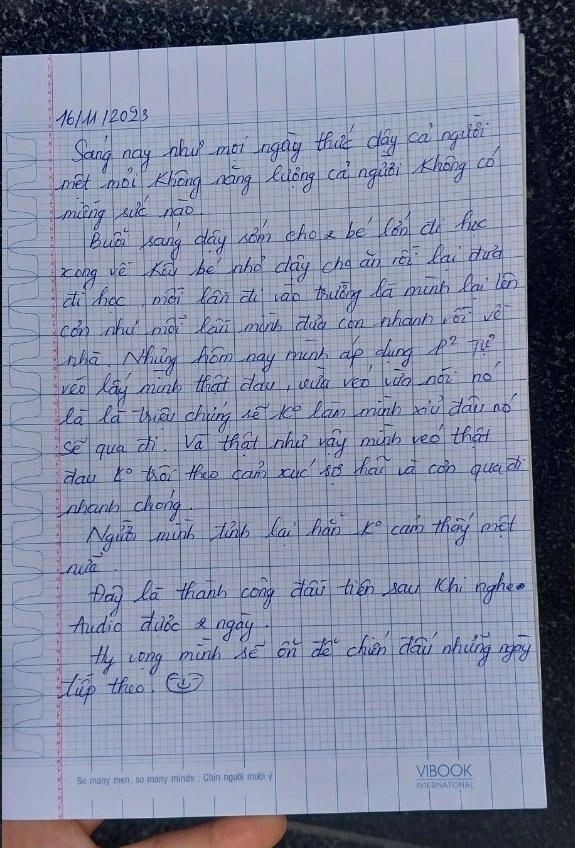 16/11/2023
Sáng nay như mọi ngày thức dậy cả người
mệt mỏi không năng lượng cả người không có
miếng sức nào.
Buổi sáng dậy sớm cho 2 bé lớn đi học
xong về kêu bé nhỏ dậy cho ăn rồi lại đưa
đi học, mỗi lần đi vào trường là mình lại lên
cơn như mọi lần mình đưa con nhanh rồi về
nhà. Nhưng hôm nay mình áp dụng P² Tự
véo lấy mình thật đau, vừa véo vừa nói nó
là là triệu chứng sẽ k° làm mình xỉu đâu nó
sẽ qua đi. Và thật như vậy mình véo thật
đau k° trôi theo cảm xúc sợ hãi và cơn qua đi
nhanh chóng.
Người mình tỉnh lại hẳn k° cảm thấy mệt
nữa.
Đây là thành công đầu tiên sau khi nghe
Audio được 2 ngày.
Hy vọng mình sẽ ổn để chiến đấu những ngày
tiếp theo.
So many men, so many minds : Chín người mười ý
VIBOOK
INTERNATIONAL